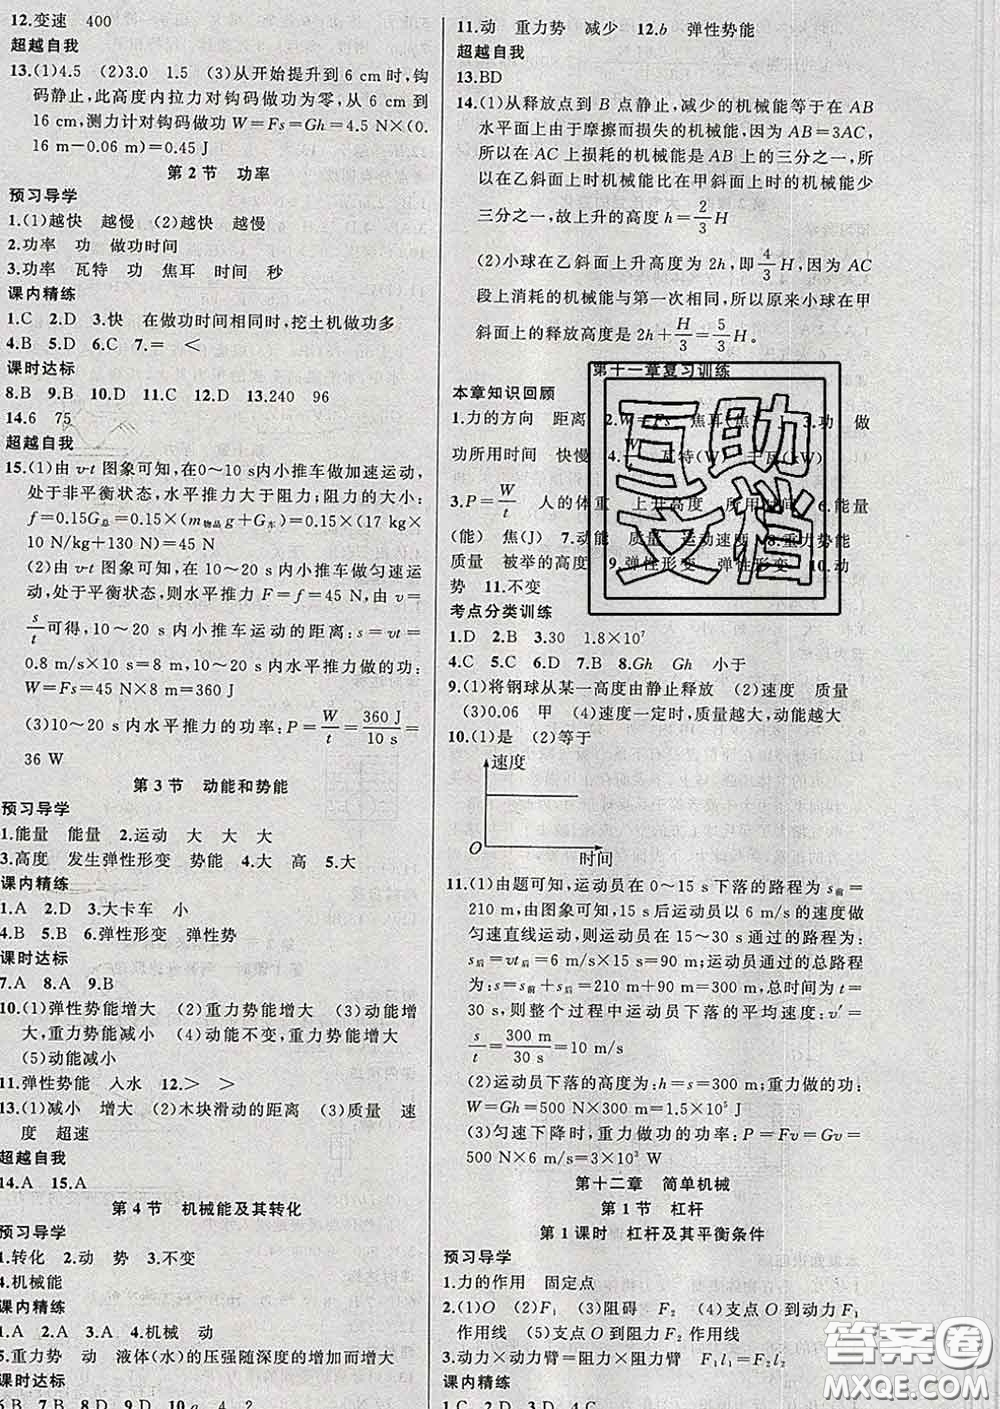 12.变速 400
超越自我
13.(1)4.5 (2)3.0 1.5 (3)从开始提升到 6 cm 时,钩
码静止,此高度内拉力对钩码做功为零,从 6 cm 到
16 cm,测力计对钩码做功 W=Fs=Gh=4.5 N×(0.
16 m-0.06 m)=0.45 J
第 2 节 功率
预习导学
1.(1)越快 越慢 (2)越快 越慢
2.功率 功 做功时间
3.功率 瓦特 功 焦耳 时间 秒
课内精练
1.C 2.D 3.快 在做功时间相同时,挖土机做功多
4.B 5.D 6.C 7.= <
课时达标
8.B 9.B 10.D 11.C 12.D 13.240 96
14.6 75
超越自我
15.(1)由 v-t 图象可知,在0~10 s内小推车做加速运动,
处于非平衡状态,水平推力大于阻力;阻力的大小:
f=0.15G总=0.15×(m物品g+G车)=0.15×(17 kg×
10 N/kg+130 N)=45 N
(2)由 v-t 图象可知,在 10~20 s 内小推车做匀速运
动,处于平衡状态,则水平推力 F=f=45 N,由 v=
s/t 可得,10~20 s 内小推车运动的距离:s=vt=
0.8 m/s×10 s=8 m,10~20 s 内水平推力做的功:
W=Fs=45 N×8 m=360 J
(3)10~20 s 内水平推力的功率:P=W/t=360 J/10 s=
36 W
第 3 节 动能和势能
预习导学
1.能量 能量 2.运动 大 大 大
3.高度 发生弹性形变 势能 4.大 高 5.大
课内精练
1.A 2.D 3.大卡车 小
4.B 5.B 6.弹性形变 弹性势
课时达标
7.A 8.A 9.B
10.(1)弹性势能增大 (2)重力势能增大 (3)动能增
大,重力势能减小 (4)动能不变,重力势能增大
(5)动能减小
11.弹性势能 入水 12.> >
13.(1)减小 增大 (2)木块滑动的距离 (3)质量 速
度 超速
超越自我
14.A 15.A
第 4 节 机械能及其转化
预习导学
1.转化 2.动 势 3.不变
4.机械能
课内精练
1.A 2.A 3.A 4.机械 动
5.重力势 动 液体(水)的压强随深度的增加而增大
课时达标
6.B 7.B 8.D 9.D 10.a 4 2
11.动 重力势 减少 12.b 弹性势能
超越自我
13.BD
14.(1)从释放点到 B 点静止,减少的机械能等于在 AB
水平面上由于摩擦而损失的机械能,因为 AB=3AC,
所以在 AC 上损耗的机械能是 AB 上的三分之一,所
以在乙斜面上时机械能比在甲斜面上时的机械能少
三分之一,故上升的高度 h=2/3H
(2)小球在乙斜面上升高度为 2h,即4/3H,因为 AC
段上消耗的机械能与第一次相同,所以原来小球在甲
斜面上的释放高度是 2h+H/3=5/3H。
第十一章复习训练
本章知识回顾
1.力的方向 距离 2.W=Fs 焦耳(焦) J 3.功 做
功所用时间 快慢 4. 瓦特(W) 瓦(kW)
3.P=W/t 人的体重 上升高度 所用时间 6.能量
(能) 焦(J) 7.动能 质量 运动速度 8.重力势能
质量 被举的高度 9.弹性形变 弹性形变 10.动
势 11.不变
考点分类训练
1.D 2.B 3.30 1.8×10⁷
4.C 5.C 6.D 7.B 8.Gh Gh 小于
9.(1)将钢球从某一高度由静止释放 (2)速度 质量
(3)0.06 甲 (4)速度一定时,质量越大,动能越大
10.(1)是 (2)等于
速度
O 时间
11.(1)由题可知,运动员在 0~15 s 下落的路程为 s前=
210 m,由图象可知,15 s 后运动员以 6 m/s 的速度做
匀速直线运动,则运动员在 15~30 s 运动的路程:
s后=vt后=6 m/s×15 s=90 m;运动员通过的总路
程为:s=s前+s后=210 m+90 m=300 m,总时间为 t=
30 s,则整个过程中运动员下落的平均速度:v′=
s/t=300 m/30 s=10 m/s
(2)运动员下落的高度为:h=s=300 m;重力做的功:
W=Gh=500 N×300 m=1.5×10⁵ J
(3)匀速下降时,重力做功的功率:P=Fv=Gv=
500 N×6 m/s=3×10³ W
第十二章 简单机械
第 1 节 杠杆
第 1 课时 杠杆及其平衡条件
预习导学
1.力的作用 固定点
2.(1)O (2)F₁ (3)阻碍 F₂ (4)支点 O 到动力 F₁
作用线 (5)支点 O 到阻力 F₂ 作用线
3.动力×动力臂=阻力×阻力臂 F₁l₁=F₂l₂
课内精练
1.C 2.D 3.D 4.C
互助
文档
答案圈
MXQE.COM